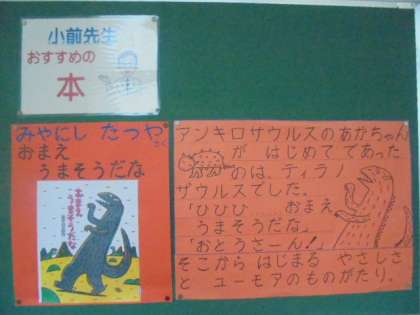 小前先生
おすすめの
本
みやにし たつや
さく
おまえ
うまそうだな
おまえ
うまそうだな
アンキロサウルスのあかちゃん
が はじめて であった
のは、ティラノ
ザウルスでした。
「ひひひ…… おまえ
うまそうだな」
「おとうさーん!」
そこから はじまる やさしさ
と ユーモアのものがたり。